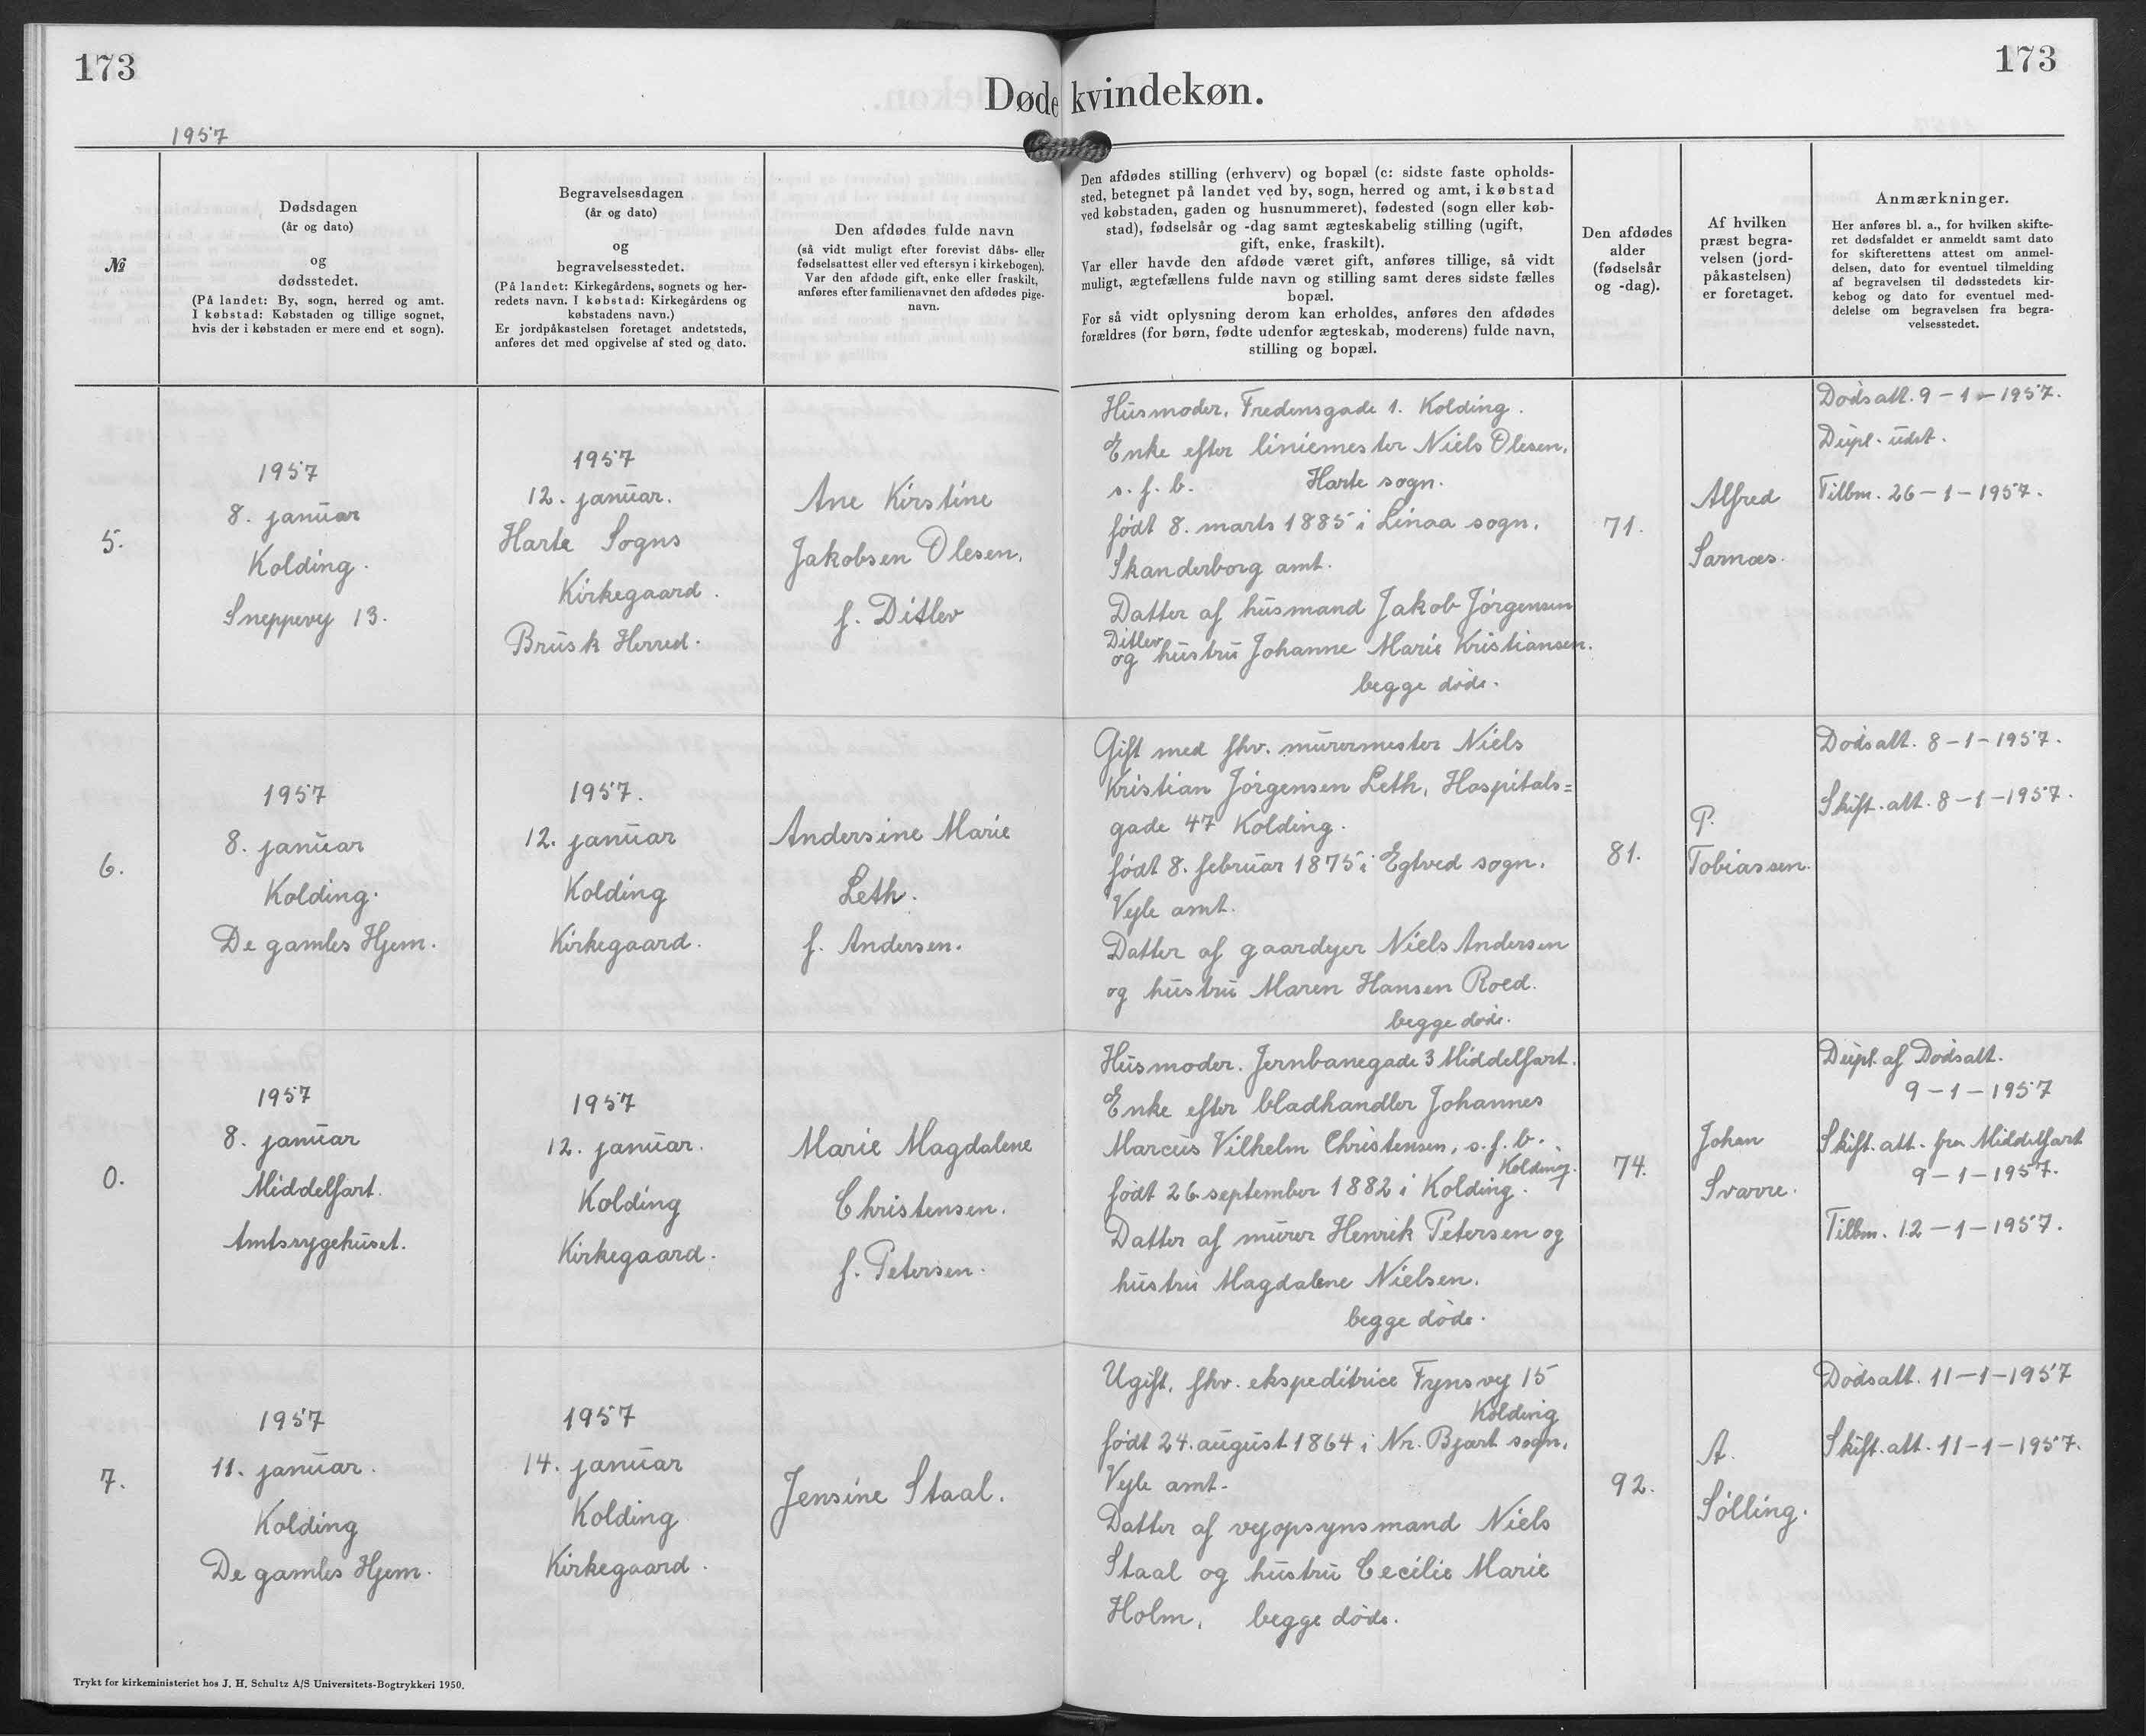 173
173
Døde kvindekøn.
1957
№
Dødsdagen
(år og dato)
og
dødsstedet.
(På landet: By, sogn, herred og amt.
I købstad: Købstaden og tillige sognet,
hvis der i købstaden er mere end et sogn).
Begravelsesdagen
(år og dato)
og
begravelsesstedet.
(På landet: Kirkegårdens, sognets og her-
redets navn. I købstad: Kirkegårdens og
købstadens navn.)
Er jordpåkastelsen foretaget andetsteds,
anføres det med opgivelse af sted og dato.
Den afdødes fulde navn
(så vidt muligt efter forevist dåbs- eller
fødselsattest eller ved eftersyn i kirkebogen).
Var den afdøde gift, enke eller fraskilt,
anføres efter familienavnet den afdødes pige-
navn.
Den afdødes stilling (erhverv) og bopæl (c: sidste faste opholds-
sted, betegnet på landet ved by, sogn, herred og amt, i købstad
ved købstaden, gaden og husnummeret), fødested (sogn eller køb-
stad), fødselsår og -dag samt ægteskabelig stilling (ugift,
gift, enke, fraskilt).
Var eller havde den afdøde været gift, anføres tillige, så vidt
muligt, ægtefællens fulde navn og stilling samt deres sidste fælles
bopæl.
For så vidt oplysning derom kan erholdes, anføres den afdødes
forældres (for børn, fødte udenfor ægteskab, moderens) fulde navn,
stilling og bopæl.
Den afdødes
alder
(fødselsår
og -dag).
Af hvilken
præst begra-
velsen (jord-
påkastelsen)
er foretaget.
Anmærkninger.
Her anføres bl. a., for hvilken skifte-
ret dødsfaldet er anmeldt samt dato
for skifterettens attest om anmel-
delsen, dato for eventuel tilmelding
af begravelsen til dødsstedets kir-
kebog og dato for eventuel med-
delelse om begravelsen fra begra-
velsesstedet.
5.
1957
8. januar
Kolding.
Sneppevej 13.
1957
12. januar.
Harte Sogns
Kirkegaard.
Brusk Herred.
Ane Kirstine
Jakobsen Olesen.
f. Ditlev
Husmoder, Fredensgade 1. Kolding.
Enke efter liniemester Niels Olesen,
s. f. b. Harte sogn.
født 8. marts 1885 i Linaa sogn,
Skanderborg amt.
Datter af husmand Jakob Jørgensen
Ditlev
og hustru Johanne Marie Kristiansen.
begge døde.
71.
Alfred
Sarnæs.
Dødsatt. 9-1-1957.
Dupl. udst.
Tillm. 26-1-1957.
6.
1957
8. januar
Kolding.
De gamles Hjem.
1957.
12. januar
Kolding
Kirkegaard.
Andersine Marie
Leth.
f. Andersen.
Gift med fhv. murermester Niels
Kristian Jørgensen Leth, Hospitals=
gade 47 Kolding.
født 8. februar 1875 i Egtved sogn.
Vejle amt.
Datter af gaardejer Niels Andersen
og hustru Maren Hansen Roed.
begge døde.
81.
P.
Tobiassen.
Dødsatt. 8-1-1957.
Skift. att. 8-1-1957.
0.
1957
8. januar
Middelfart.
Amtssygehuset.
1957
12. januar.
Kolding
Kirkegaard.
Marie Magdalene
Christensen.
f. Petersen.
Husmoder. Jernbanegade 3 Middelfart.
Enke efter bladhandler Johannes
Marcus Vilhelm Christensen, s. f. b.
Kolding.
født 26. september 1882 i Kolding.
Datter af murer Henrik Petersen og
hustru Magdalene Nielsen.
begge døde.
74.
Johan
Svarre.
Dupl. af Dødsatt.
9-1-1957
Skift. att. fra Middelfart
9-1-1957.
Tillm. 12-1-1957.
7.
1957
11. januar.
Kolding
De gamles Hjem.
1957
14. januar
Kolding
Kirkegaard.
Jensine Staal.
Ugift, fhv. ekspeditrice Fynsvej 15
Kolding
født 24. august 1864 i Nr. Bjært sogn,
Vejle amt.
Datter af vejopsynsmand Niels
Staal og hustru Cecilie Marie
Holm, begge døde.
92.
A.
Sølling.
Dødsatt. 11-1-1957
Skift. att. 11-1-1957.
Trykt for kirkeministeriet hos J. H. Schultz A/S Universitets-Bogtrykkeri 1950.